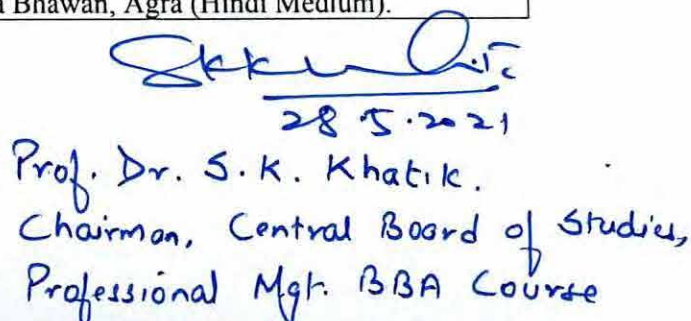 Bhawan, Agra (Hindi Medium).
28.5.2021
Prof. Dr. S.K. Khatik.
Chairman, Central Board of Studies,
Professional Mgt. BBA Course